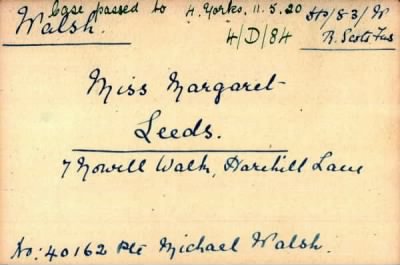 Case passed to H. Yorks. 11.5.20
4/D/84
DP/83/W
R. Scots Fus
Walsh.
Miss Margaret
Leeds.
7 Nowell Walk, Harehill Lane
No: 40162 Pte Michael Walsh.